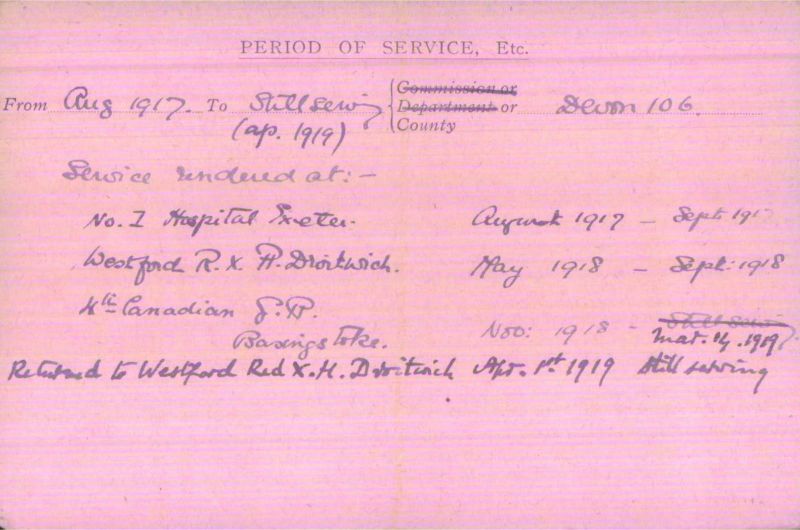 PERIOD OF SERVICE, Etc.
From Aug 1917. To Still serving Commission or Department or County Devon 106.
(ap. 1919)
Service rendered at:-
No. I Hospital Exeter. August 1917 - Sept 1917
Westford R. X H. Droitwich. May 1918 - Sept: 1918
4th Canadian G. H. Basingstoke. Nov: 1918 - Still serving Mar. 14. 1919
Returned to Westford Red X. H. Droitwich Apr. 1st 1919 Still serving